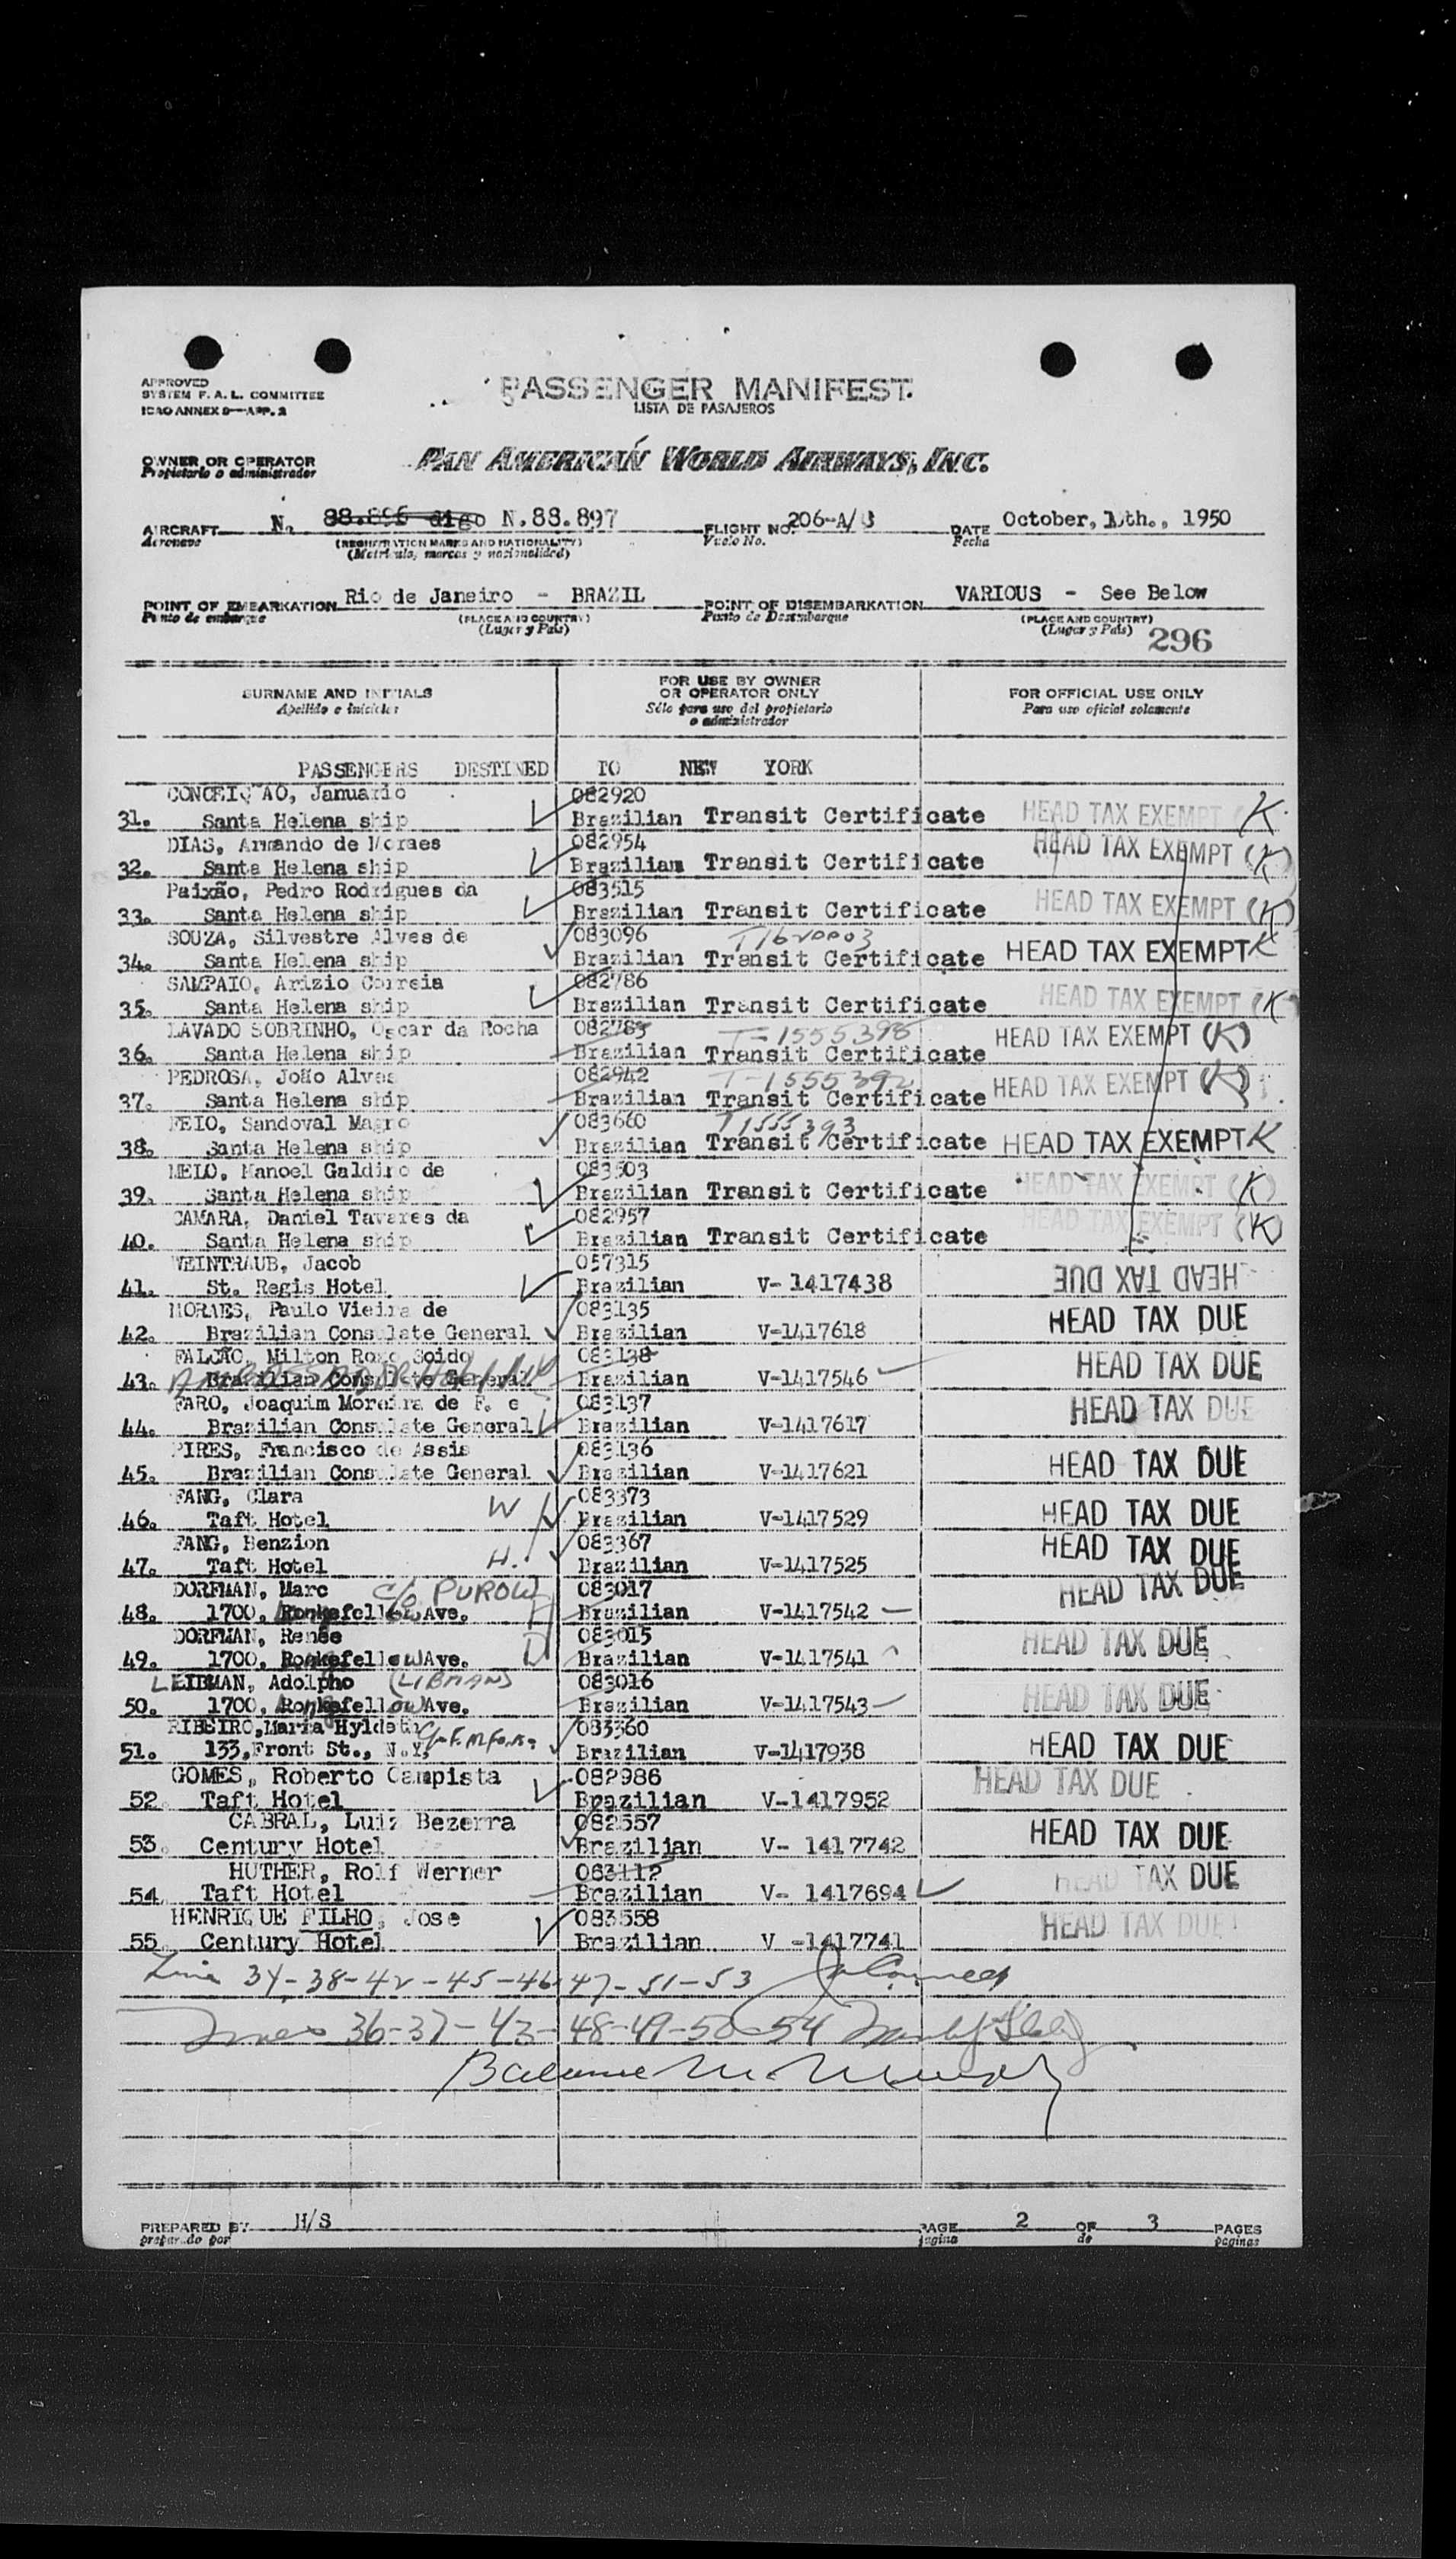 APPROVED
SYSTEM F. A. L. COMMITTEE
ICAO ANNEX 9—APP. 2
PASSENGER MANIFEST
LISTA DE PASAJEROS
OWNER OR OPERATOR
Propietario o administrador
PAN AMERICAN WORLD AIRWAYS, INC.
AIRCRAFT N. 88.896 digo N.88.897 FLIGHT NO. 206-A/ DATE October, th., 1950
Aeronave (REGISTRATION MARKS AND NATIONALITY) Vuelo No. Fecha
(Matrícula, marcas y nacionalidad)
POINT OF EMBARKATION Rio de Janeiro - BRAZIL POINT OF DISEMBARKATION VARIOUS - See Below
Punto de embarque (PLACE AND COUNTRY) Punto de Desembarque (PLACE AND COUNTRY)
(Lugar y País) (Lugar y País) 296
SURNAME AND INITIALS FOR USE BY OWNER OR OPERATOR ONLY FOR OFFICIAL USE ONLY
Apellido e iniciales Sólo para uso del propietario o administrador Para uso oficial solamente
PASSENGERS DESTINED TO NEW YORK
CONCEIÇAO, Januario 082920
31. Santa Helena ship Brazilian Transit Certificate HEAD TAX EXEMPT K
DIAS, Armando de Moraes 082954
32. Santa Helena ship Brazilian Transit Certificate HEAD TAX EXEMPT (K)
Paixão, Pedro Rodrigues da 083515
33. Santa Helena ship Brazilian Transit Certificate HEAD TAX EXEMPT (K)
SOUZA, Silvestre Alves de 083096
34. Santa Helena ship Brazilian Transit Certificate HEAD TAX EXEMPT K
SAMPAIO, Arizio Correia 082786
35. Santa Helena ship Brazilian Transit Certificate HEAD TAX EXEMPT (K)
LAVADO SOBRINHO, Oscar da Rocha 082785 T-1555395
36. Santa Helena ship Brazilian Transit Certificate HEAD TAX EXEMPT (K)
PEDROSA, João Alves 082942 T-1555392
37. Santa Helena ship Brazilian Transit Certificate HEAD TAX EXEMPT (K)
FEIO, Sandoval Magno 083660 T1555393
38. Santa Helena ship Brazilian Transit Certificate HEAD TAX EXEMPT K
MELO, Manoel Galdino de 083503
39. Santa Helena ship Brazilian Transit Certificate HEAD TAX EXEMPT (K)
CAMARA, Daniel Tavares da 082957
40. Santa Helena ship Brazilian Transit Certificate HEAD TAX EXEMPT (K)
WEINTRAUB, Jacob 057315
41. St. Regis Hotel Brazilian V- 1417438 HEAD TAX DUE
MORAES, Paulo Vieira de 083135
42. Brazilian Consulate General Brazilian V-1417618 HEAD TAX DUE
FALCÃO, Milton Roxo Soido 083138
43. Brazilian Consulate General Brazilian V-1417546 HEAD TAX DUE
FARO, Joaquim Moreira de F. e 083137
44. Brazilian Consulate General Brazilian V-1417617 HEAD TAX DUE
PIRES, Francisco de Assis 083136
45. Brazilian Consulate General Brazilian V-1417621 HEAD TAX DUE
FANG, Clara W 083373
46. Taft Hotel Brazilian V-1417529 HEAD TAX DUE
FANG, Benzion H. 083367
47. Taft Hotel Brazilian V-1417525 HEAD TAX DUE
DORFMAN, Marc c/o PUROW 083017
48. 1700, Ave. Brazilian V-1417542 HEAD TAX DUE
DORFMAN, Renée 083015
49. 1700, Ave. Brazilian V-1417541 HEAD TAX DUE
LEIBMAN, Adolpho (LIBMAN) 083016
50. 1700, Ave. Brazilian V-1417543 HEAD TAX DUE
RIBEIRO, Maria Hyldeth 083360
51. 133, Front St., N.Y. Brazilian V-1417938 HEAD TAX DUE
GOMES, Roberto Campista 082986
52. Taft Hotel Brazilian V-1417952 HEAD TAX DUE
CABRAL, Luiz Bezerra 082557
53. Century Hotel Brazilian V- 1417742 HEAD TAX DUE
HUTHER, Rolf Werner 063112
54. Taft Hotel Brazilian V- 1417694 HEAD TAX DUE
HENRIQUE FILHO, Jose 083558
55. Century Hotel Brazilian V -1417741 HEAD TAX DUE
Line 34-38-42-45-46-47-51-53
Lines 36-37-43-48-49-50-54
Balance
PREPARED BY H/S PAGE 2 OF 3 PAGES
preparado por pagina de paginas